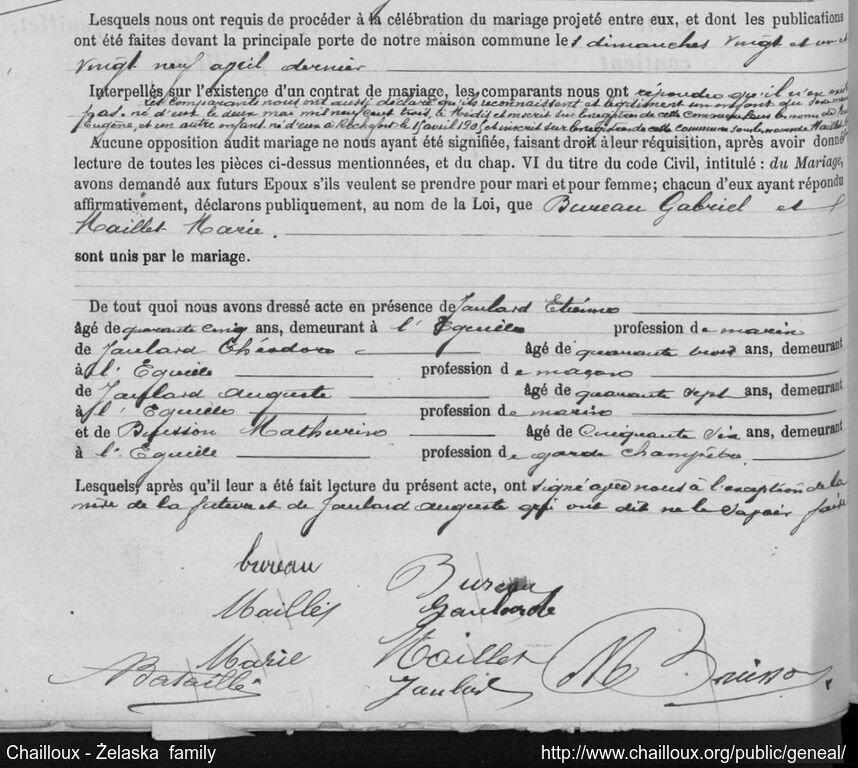 Lesquels nous ont requis de procéder à la célébration du mariage projeté entre eux, et dont les publications
ont été faites devant la principale porte de notre maison commune les dimanches vingt et un et
vingt neuf avril dernier
Interpellés sur l'existence d'un contrat de mariage, les comparants nous ont répondu qu'il n'en existe
pas. Les comparants nous ont aussi déclaré qu'ils reconnaissent et légitiment un enfant
né d'eux le deux mai mil neuf cent trois, à et inscrit sur les registres de cette commune sous le nom de
Eugène, et un autre enfant né d'eux à Rochefort le avril 190 et inscrit sur les registres de cette commune sous le nom de Maillet
Aucune opposition audit mariage ne nous ayant été signifiée, faisant droit à leur réquisition, après avoir donné
lecture de toutes les pièces ci-dessus mentionnées, et du chap. VI du titre du code Civil, intitulé : du Mariage,
avons demandé aux futurs Epoux s'ils veulent se prendre pour mari et pour femme; chacun d'eux ayant répondu
affirmativement, déclarons publiquement, au nom de la Loi, que Bureau Gabriel et
Maillet Marie.
sont unis par le mariage.
De tout quoi nous avons dressé acte en présence de Jaulard Etienne
âgé de quarante cinq ans, demeurant à l'Eguille profession de marin
de Jaulard Théodore âgé de quarante trois ans, demeurant
à l'Eguille profession de maçon
de Jaulard Auguste âgé de quarante sept ans, demeurant
à l'Eguille profession de marin
et de Buisson Mathurin âgé de cinquante six ans, demeurant
à l'Eguille profession de garde champêtre
Lesquels, après qu'il leur a été fait lecture du présent acte, ont signé avec nous à l'exception de la
mère de la future et de Jaulard Auguste qui ont dit ne le savoir faire
bureau Bureau
Maillet Jaulard
Marie Maillet
Bataille Jaulard M Buisson
Chailloux - Żelaska family http://www.chailloux.org/public/geneal/